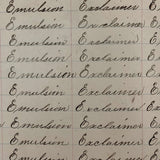 Emulsion Exclaimer
Emulsion Exclaimer
Emulsion Exclaimer
Emulsion Exclaimer
Emulsion Exclaimer
Emulsion Exclaimer
Emulsion Exclaimer
Emulsion Exclaimer
Emulsion Exclaimer